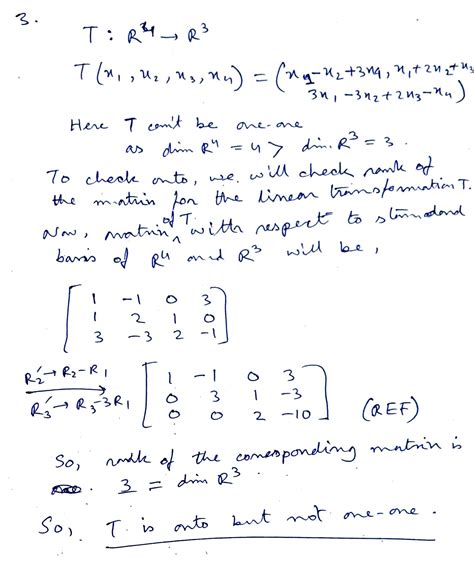 3.
T : R⁴ → R³
T(x₁, x₂, x₃, x₄) = (x₁-x₂+3x₄, x₁+2x₂+x₃
3x₁-3x₂+2x₃-x₄)
Here T can't be one-one
as dim R⁴ = 4 > dim. R³ = 3.
To check onto, we will check rank of
the matrix for the linear transformation T.
Now, matrix of T with respect to standard
basis of R⁴ and R³ will be,
[ 1 -1 0 3
1 2 1 0
3 -3 2 -1 ]
R₂' → R₂-R₁
R₃' → R₃-3R₁
[ 1 -1 0 3
0 3 1 -3
0 0 2 -10 ] (REF)
So, rank of the corresponding matrix is
3 = dim R³.
So, T is onto but not one-one.